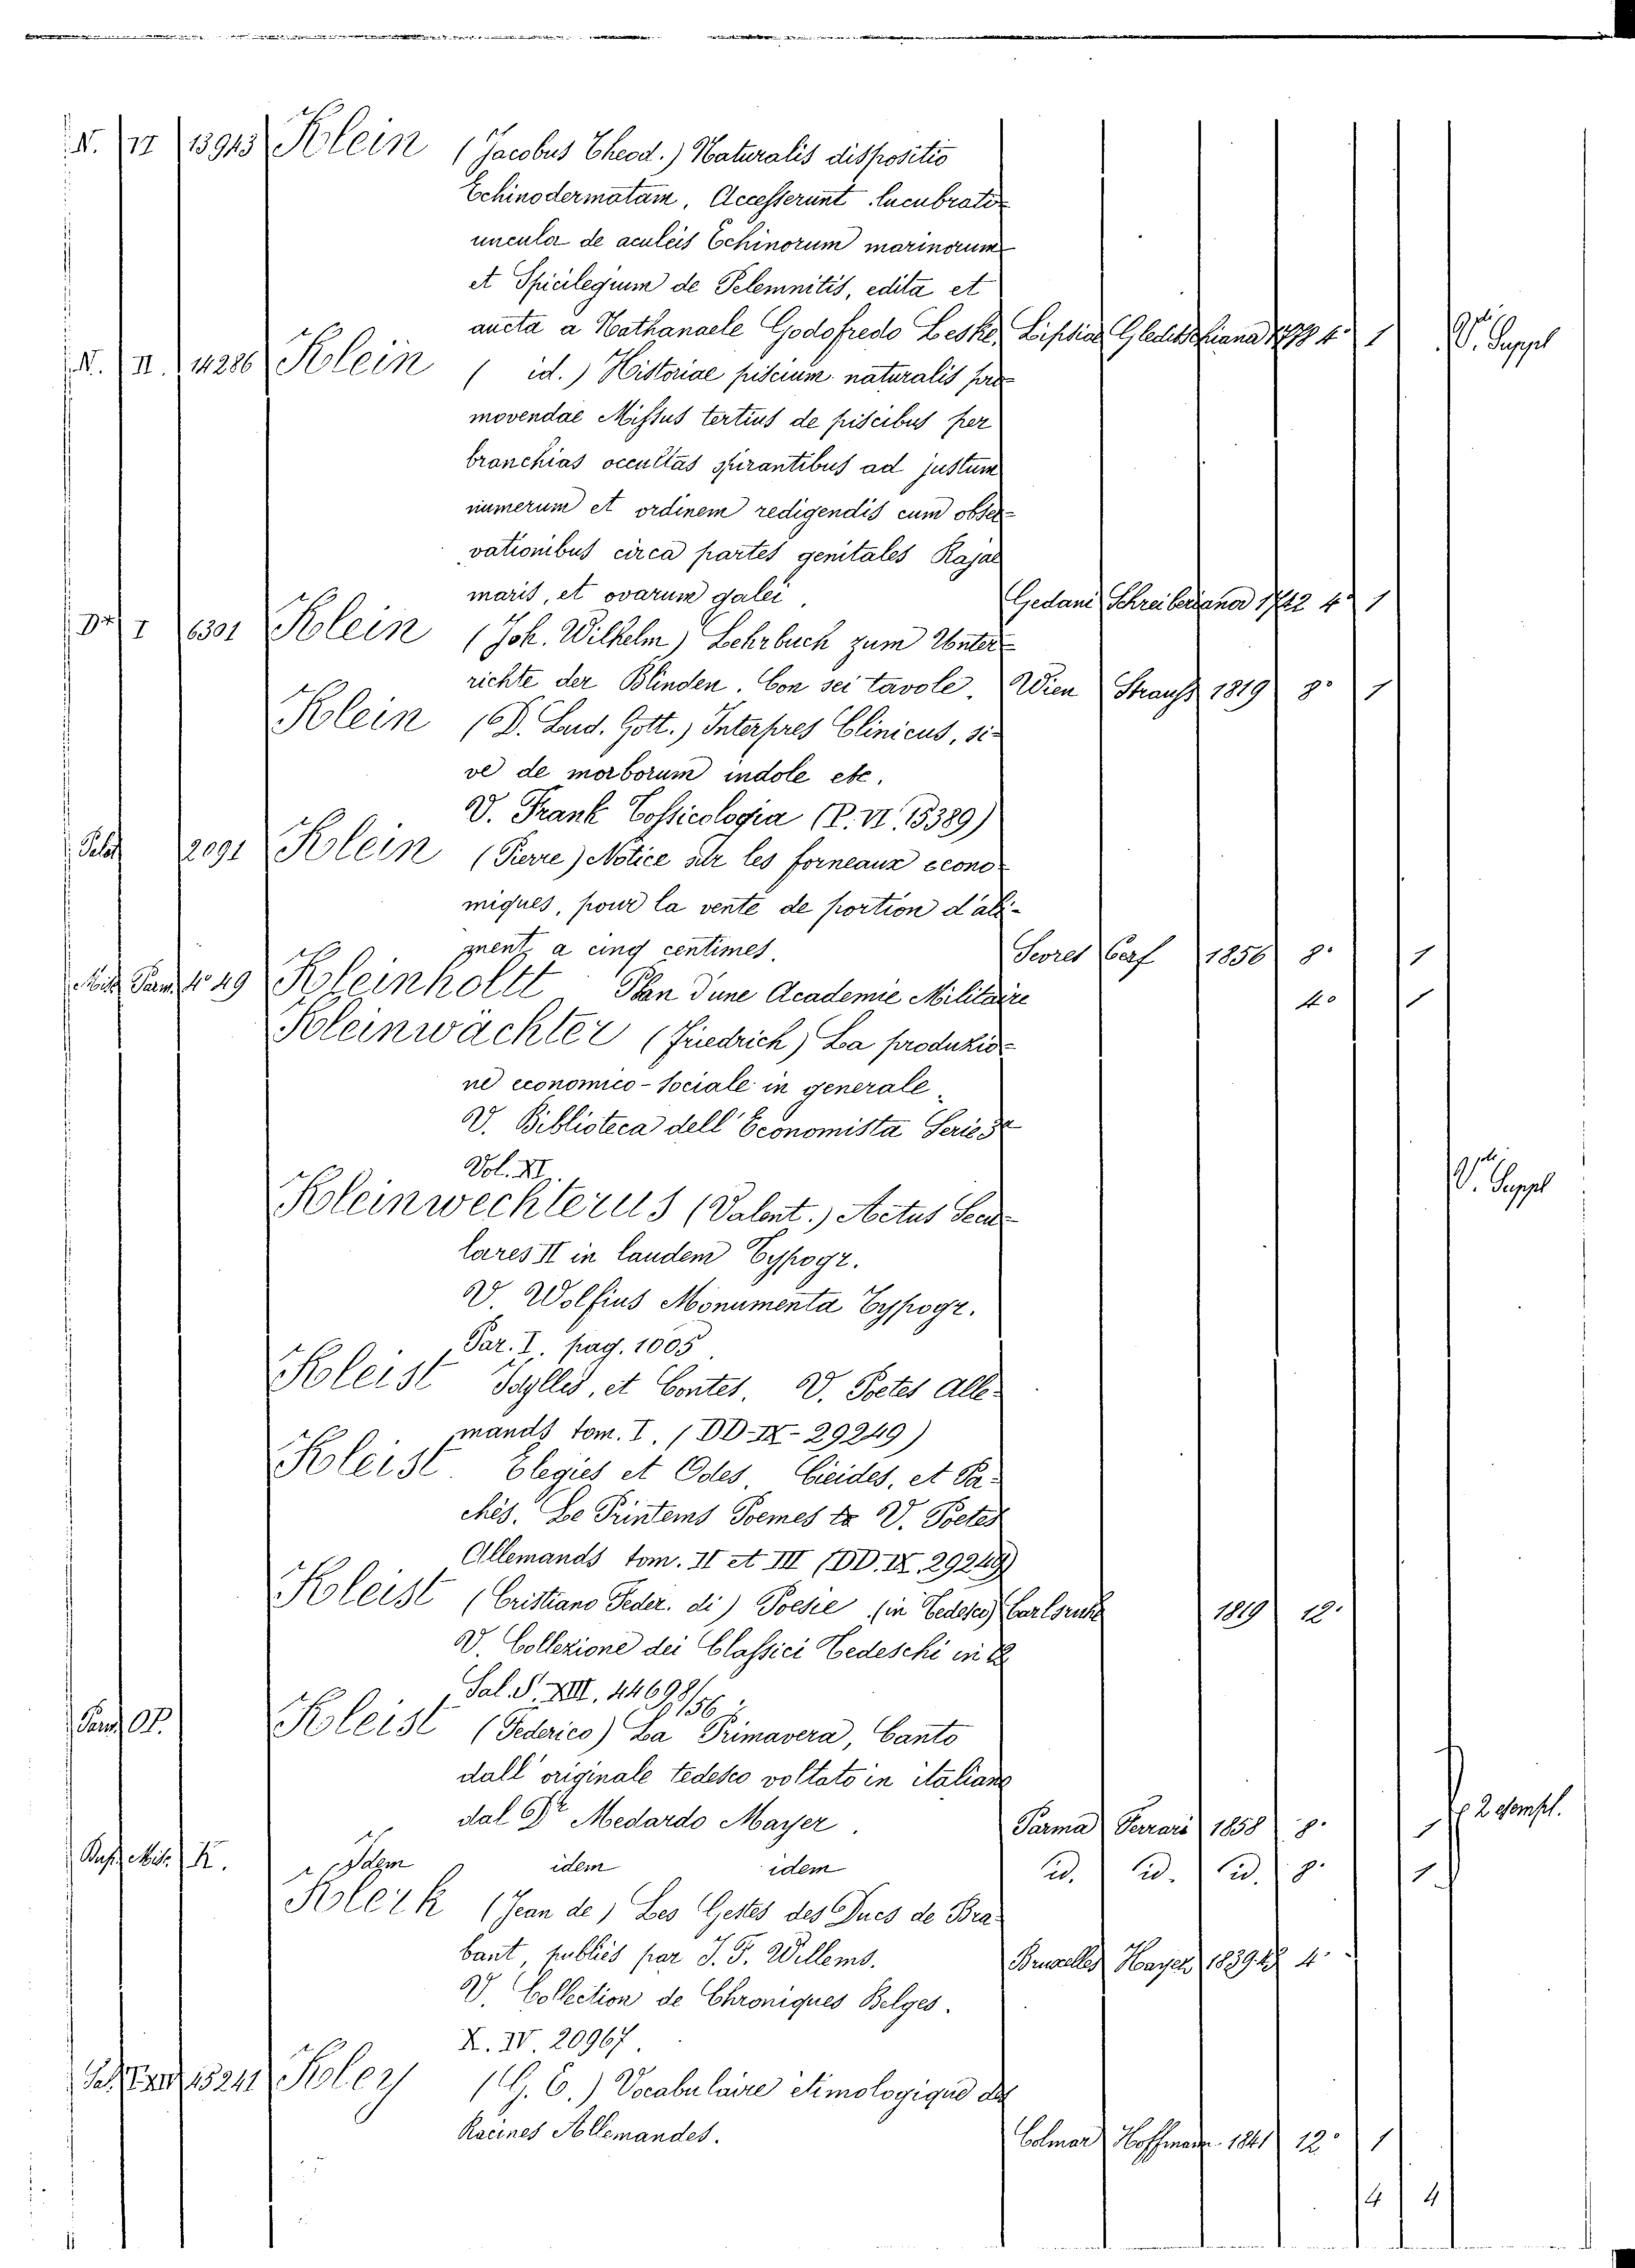 N. VI 13913 Klein (Jacobus Theod.) Naturalis dispositio
Echinodermatam. Accesserunt lucubrati-
uncula de aculeis Echinorum marinorum
et Spicilegium de Pelemnitis, edita et
aucta a Nathanaele Godofredo Leske. Lipsiae Gleditschiana 4° 1 V. Suppl
N. II. 14286 Klein ( id.) Historiae piscium naturalis pro
movendae Missus tertius de piscibus per
branchias occultas spirantibus ad justum
numerum et ordinem redigendis cum obser-
vationibus circa partes genitales Rajae
maris, et ovarum galei. Gedani Schreiberiana 1742 4° 1
I 6301 Klein (Joh. Wilhelm) Lehrbuch zum Unter-
richte der Blinden. Con sei tavole. Wien Strauss 1819 8° 1
Klein (D. Lud. Gott.) Interpres Clinicus, si-
ve de morborum indole etc.
V. Frank Tossicologia (P. VI. 15389)
2091 Klein (Pierre) Notice sur les forneaux econo-
miques, pour la vente de portion d'ali-
ment, a cinq centimes. Sevres Cerf 1856 8° 1
Misc. Parm. 4° 49 Kleinholtt Plan d'une Academie Militaire 4° 1
Kleinwächter (Friedrich) La produzio-
ne economico-sociale in generale.
V. Biblioteca dell'Economista Serie 3a
Vol. XI.
Kleinwechterus (Valent.) Actus Secu- V. Suppl
lares II in laudem Typogr.
V. Wolfius Monumenta Typogr.
Par. I. pag. 1005
Kleist Idylles, et Contes. V. Poetes Alle-
mands tom. I. (DD-IX-29249)
Kleist. Elegies et Odes. Cieides, et Pa-
chès. Le Printems Poemes &a V. Poetes
Allemands tom. II et III (DD. IX. 29249)
Kleist (Cristiano Feder. di) Poesie (in Tedesco) Carlsruhe 1819 12°
V. Collezione dei Classici Tedeschi in 12
Sal. S. XIII. 44698/56
Parm. Kleist (Federico) La Primavera, Canto
dall'originale tedesco voltato in italiano
dal Dr Medardo Mayer. Parma Ferrari 1858 8° 1 2 esempl.
Misc. K. Idem idem idem id. id. id. 8° 1
Klerk (Jean de) Les Gestes des Ducs de Bra-
bant, publiés par J. F. Willems. Bruxelles Hayez 1839 4°
V. Collection de Chroniques Belges.
X. IV. 20967.
15241 Kley (G. E.) Vocabulaire étimologique des
Racines Allemandes. Colmar Hoffmann 1841 12° 1
4 4